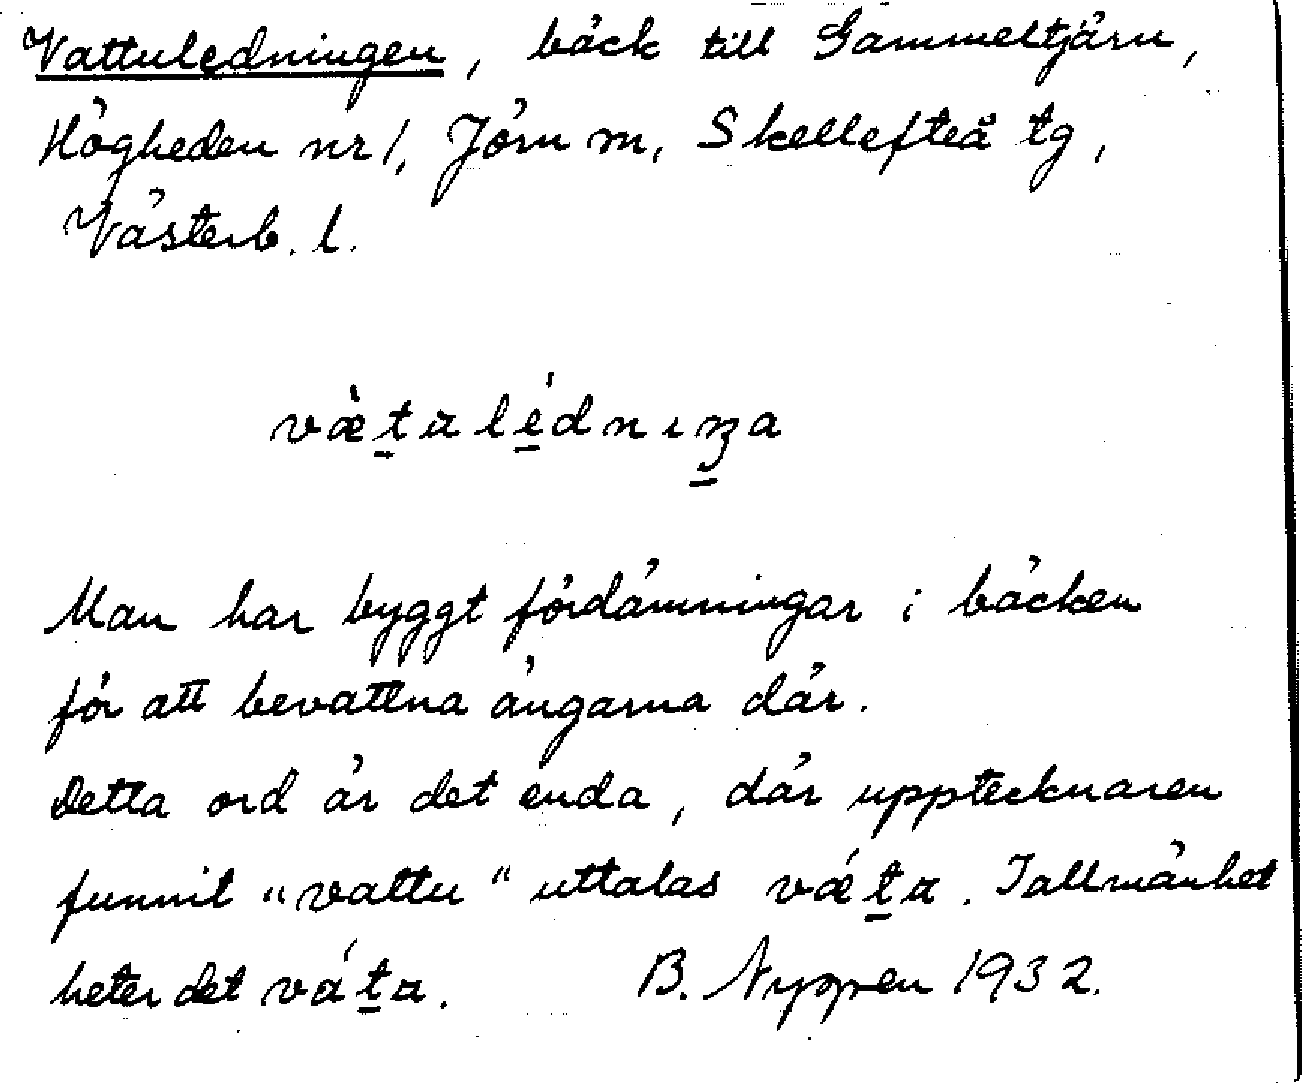 Vattuledningen, bäck till Gammeltjärn,
Högheden nr 1, Jörn m, Skellefteå tg,
Västerb. l.
væ̀ta lédnıŋa
Man har byggt fördämningar i bäcken
för att bevattna ängarna där.
Detta ord är det enda, där upptecknaren
funnit "vattu" uttalas vǽta. I allmänhet
heter det váta. B. Nyppen 1932.